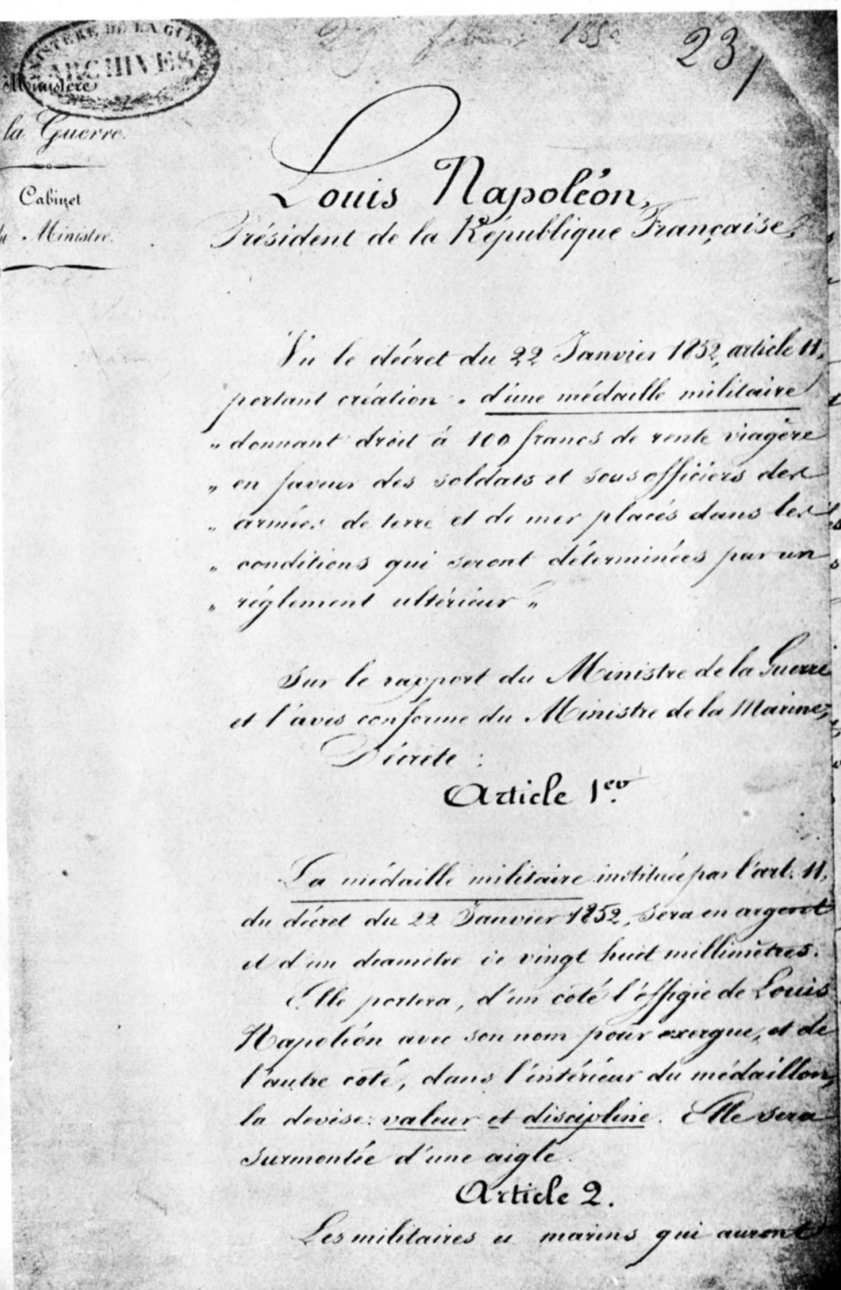 MINISTÈRE DE LA GUERRE
ARCHIVES
29 février 1852
23
Ministère
la Guerre.
Cabinet
du Ministre.
Louis Napoléon,
Président de la République Française,
Vu le décret du 22 Janvier 1852, article 11,
portant création " d'une médaille militaire
" donnant droit à 100 francs de rente viagère
" en faveur des soldats et sous officiers des
" armées de terre et de mer placés dans les
" conditions qui seront déterminées par un
" réglement ultérieur "
Sur le rapport du Ministre de la Guerre
et l'avis conforme du Ministre de la Marine,
Décrète :
Article 1er.
La médaille militaire instituée par l'art. 11,
du décret du 22 Janvier 1852, sera en argent
et d'un diamètre de vingt huit millimètres.
Elle portera, d'un coté l'effigie de Louis
Napoléon avec son nom pour exergue, et de
l'autre coté, dans l'intérieur du médaillon,
la devise: valeur et discipline. Elle sera
surmontée d'une aigle.
Article 2.
Les militaires et marins qui auront